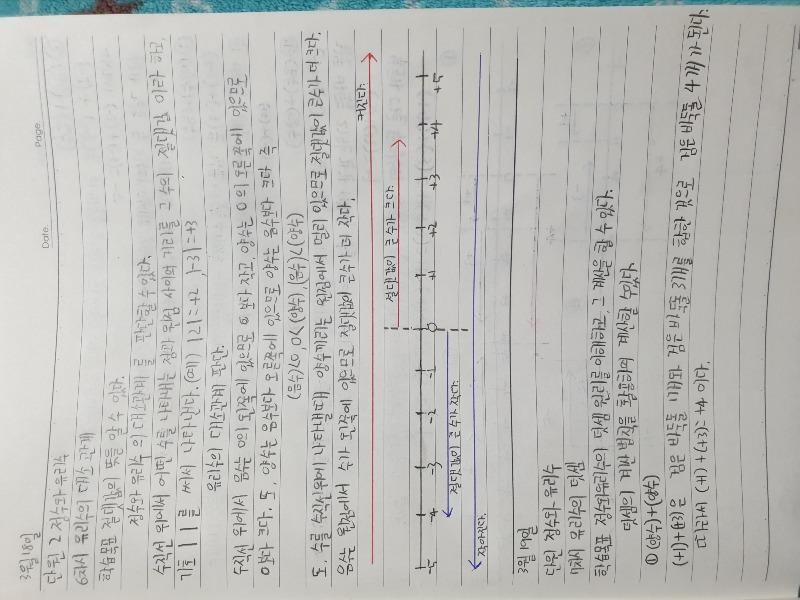 Date.
Page.
3월 18일
단원 2 정수와 유리수
6차시 유리수의 대소 관계
학습목표 절댓값의 뜻을 알 수 있다.
정수와 유리수의 대소관계를 판단할 수 있다.
수직선 위에서 어떤 수를 나타내는 점과 원점 사이의 거리를 그 수의 절댓값 이라 하고,
기호 | | 를 써서 나타낸다. (예) |2|=+2, |-3|=+3
유리수의 대소관계 판단
수직선 위에서 음수는 0의 왼쪽에 있으므로 0보다 작고 양수는 0의 오른쪽에 있으므로
0보다 크다. 또, 양수는 음수보다 오른쪽에 있으므로 양수는 음수보다 크다. 즉
(음수)<0, 0<(양수), (음수)<(양수)
또, 수를 수직선위에 나타내면 양수끼리는 원점에서 멀리 있으므로 절댓값이 큰수가 더 크고
음수는 원점에서 왼쪽에 있으므로 절댓값이 큰수가 더 작다.
커진다
절댓값이 큰 수가 크다
-5 -4 -3 -2 -1 0 +1 +2 +3 +4 +5
절댓값이 큰 수가 작다
작아진다
3월 19일
단원 정수와 유리수
7차시 유리수의 덧셈
학습목표 정수와유리수의 덧셈원리를이해하고, 그 계산을 할 수 있다.
덧셈의 계산법칙을 이용하여 계산할 수 있다.
① (양수)+(양수)
(+1)+(+3)은 같은 방향으로 1칸 간 다음 같은 방향으로 3칸을 이동한 것은 같은 방향으로 4칸 간 것이다.
그래서 (+1)+(+3)=+4이다.